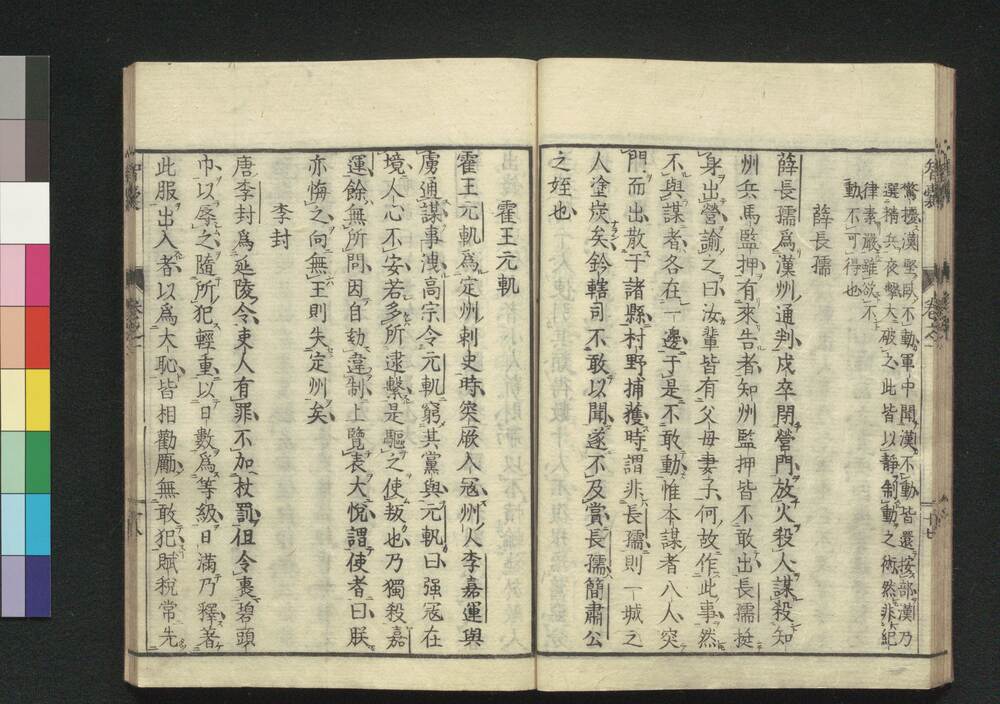 驚擾漢堅臥不動軍中聞漢不動皆還按部漢乃
選精兵夜擊大破之此皆以靜制動之術然非紀
律素嚴雖欲不
動不可得也
薛長孺
薛長孺爲漢州通判戍卒閉營門放火殺人謀殺知
州兵馬監押有來告者知州監押皆不敢出長孺挺
身出營諭之曰汝輩皆有父母妻子何故作此事然
不與謀者各在一邊于是不敢動惟本謀者八人突
門而出散于諸縣村野捕獲時謂非長孺則一城之
人塗炭矣鈐轄司不敢以聞遂不及賞長孺簡肅公
之姪也
霍王元軌
霍王元軌爲定州刺史時突厥入冦州人李嘉運與
虜通謀事洩高宗令元軌窮其黨與元軌曰强冦在
境人心不安若多所逮繫是驅之使叛也乃獨殺嘉
運餘無所問因自劾違制上覽表大悅謂使者曰朕
亦悔之向無王則失定州矣
李封
唐李封爲延陵令吏人有罪不加杖罰但令裹碧頭
巾以辱之隨所犯輕重以日數爲等級日滿乃釋著
此服出入者以爲大恥皆相勸勵無敢犯賦稅常先